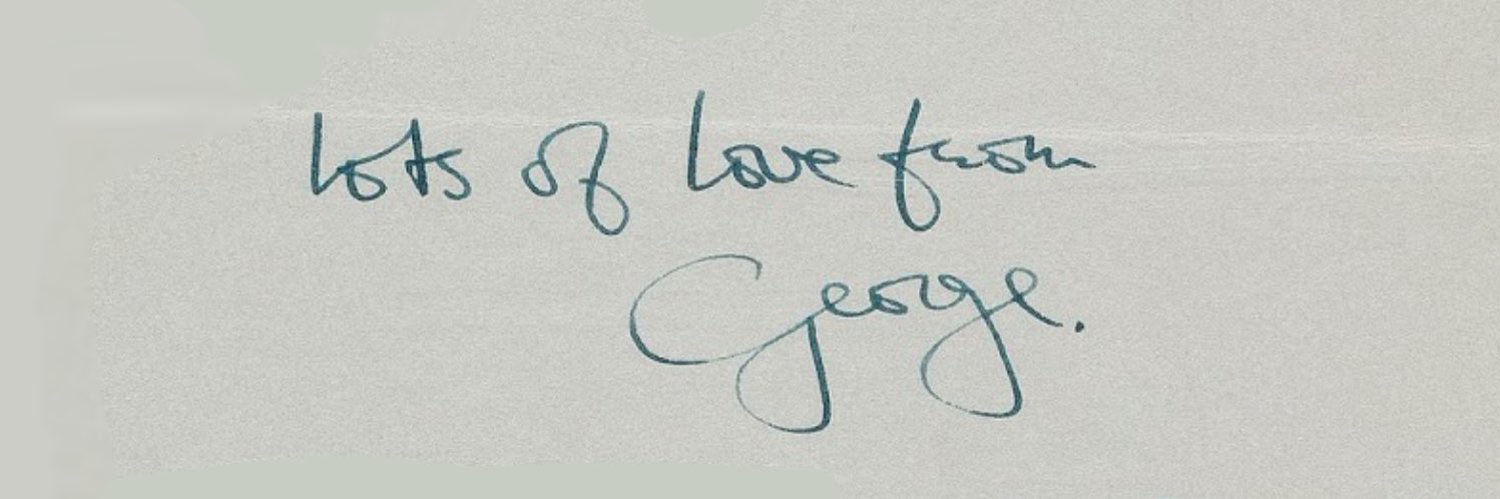 Lots of Love from
George.